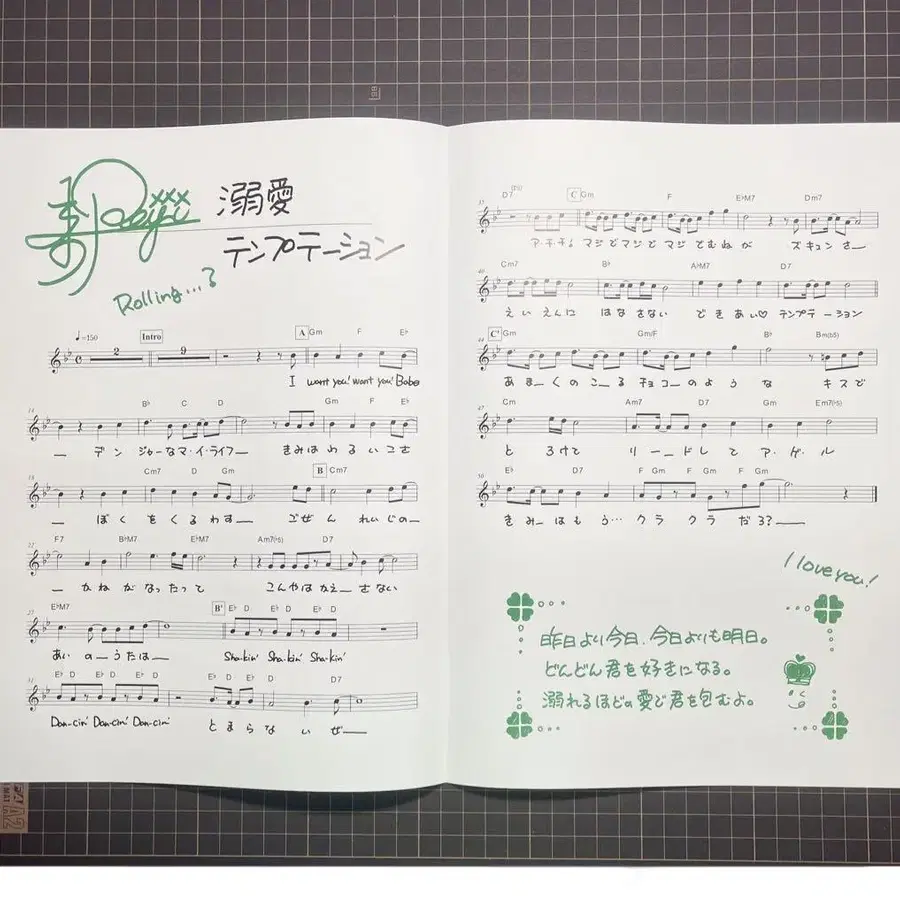 寿 Reiji xxx
溺愛
テンプテーション
Rolling...?
♩=150
2
Intro
9
A Gm F E♭
I want you! want you! Babe
14
B♭ C D Gm F E♭
デンジャーなマ・イ・ライフー きみはわるいこさ
18
Cm7 D Gm B Cm7
ー ぼくをくるわすー ごぜんれいじの
F7 B♭M7 E♭M7 Am7(♭5) D7
ー かねがなったって こんやはかえーさない
E♭M7 B' E♭ D E♭ D E♭ D
あいのーうたはー Sha-kin' Sha-kin' Sha-kin'
E♭ D E♭ D E♭ D E♭ D E♭ D D7
Dan-cin' Dan-cin' Dan-cin' とまらないぜー
D7 C Gm F E♭M7 Dm7
ア・チ・チ! マジでマジでマジでむねが ズキュンさー
40
Cm7 B♭ A♭M7 D7
えいえんに はなさない できあい♡ テンプテーション
44
C' Gm Gm/F B♭ Bm(♭5)
あまーくのこーる チョコーのような キスで
47
Cm Am7 D7 Gm Em7(♭5)
とろけて リードしてア・ゲ・ル
50
E♭ D7 F Gm F Gm F Gm
きみーはもう… クラクラだろ?ー
I love you!
昨日より今日、今日よりも明日。
どんどん君を好きになる。
溺れるほどの愛で君を包むよ。
A2